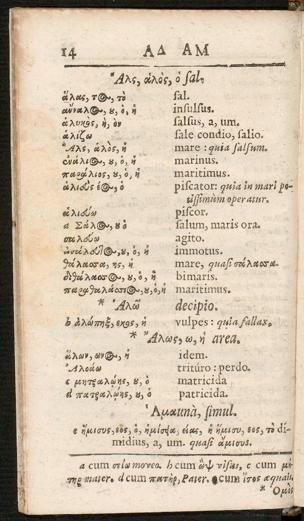 14 ΑΔ ΑΜ
Ἅλς, ἁλὸς, ὁ sal.
ἅλας, τος, τὸ sal.
ἄναλος, υ, ὁ, ἡ insulsus.
ἁλυκὸς, ἡ, ὸν salsus, a, um.
ἁλίζω sale condio, salio.
Ἅλς, ἁλὸς, ἡ mare : quia salsum.
ἐνάλιος, υ, ὁ, ἡ marinus.
παράλιος, υ, ὁ, ἡ maritimus.
ἁλιεὺς έος, ὁ piscator: quia in mari po-
tissimùm operatur.
ἁλιεύω piscor.
a Σάλος, υ ὁ salum, maris ora.
σαλεύω agito.
ἀσάλευτος, υ, ὁ, ἡ immotus.
θάλασσα, ης, ἡ mare, quasi σάλασσα.
διθάλασσος, υ, ὁ, ἡ bimaris.
παραθαλάσσιος, υ, ὁ, ἡ maritimus.
* Ἀλῶ decipio.
b ἀλώπηξ, εκος, ἡ vulpes : quia fallax.
* Ἅλως, ω, ἡ area.
ἅλων, ωνος, ἡ idem.
Ἀλοάω trituro : perdo.
c μητραλῴης, υ, ὁ matricida
d πατραλῴης, υ, ὁ patricida.
simul.
e ἥμισυς, εος, ὁ, ἡμίσεια, είας, ἡ ἥμισυ, εος, τὸ di-
midius, a, um. quasi ἅμισυς.
a cum σείω moveo. b cum ὢψ visus, c cum μή-
τηρ mater. d cum πατὴρ, Pater. e cum ἴσος æqualis
* Ὁμῶς